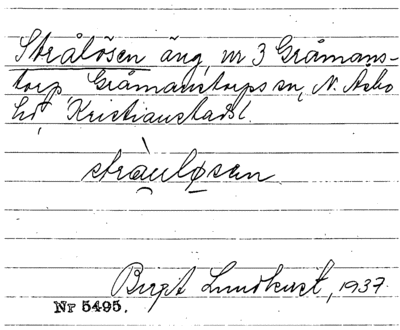 Strålösen äng, nr 3 Gråmans-
torp, Gråmanstorps sn, N. Åsbo
hd, Kristianstads l.
stràu̯lø̯sen
Birgit Lundkvist, 1937.
Nr 5495.